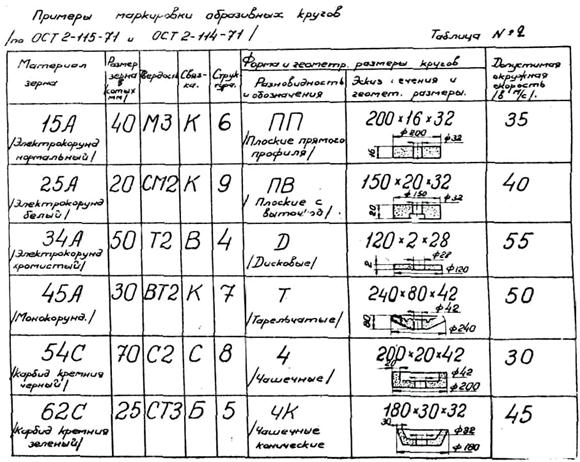 Примеры маркировки абразивных кругов
/по ОСТ 2-115-71 и ОСТ 2-114-71/
Таблица № 2
Материал зерна
Размер зерна в сотых мм/
Твердость
Связка.
Структура.
Форма и геометр. размеры кругов
Разновидность и обозначения
Эскиз сечения и геомет. размеры.
Допустимая окружная скорость /в м/с/.
15А 40 М3 К 6 ПП 200×16×32 35
/Электрокорунд нормальный/
/Плоские прямого профиля/
ф200 ф32 16
25А 20 СМ2 К 9 ПВ 150×20×32 40
/Электрокорунд белый/
/Плоские с выточкой/
ф150 ф32 20
34А 50 Т2 В 4 Д 120×2×28 55
/Электрокорунд хромистый/
/Дисковые/
ф28 2 ф120
45А 30 ВТ2 К 7 Т 240×80×42 50
/Монокорунд./
/Тарельчатые/
ф42 80 ф240
54С 70 С2 С 8 4 200×20×42 30
/Карбид кремния черный/
/Чашечные/
20 ф42 ф200
62С 25 СТ3 Б 5 ЧК 180×30×32 45
/Карбид кремния зеленый/
/Чашечные конические
30 ф32 ф180